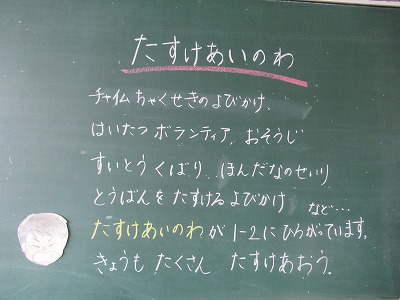 たすけあいのわ
チャイムちゃくせきのよびかけ、
はいたつボランティア、おそうじ
すいとうくばり、ほんだなのせいり
とうばんをたすけるよびかけ
など…
たすけあいのわが1-2にひろがっています。
きょうもたくさん たすけあおう。